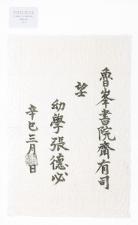 魯峯書院齋有司
望
幼學張德必
辛巳三月 日